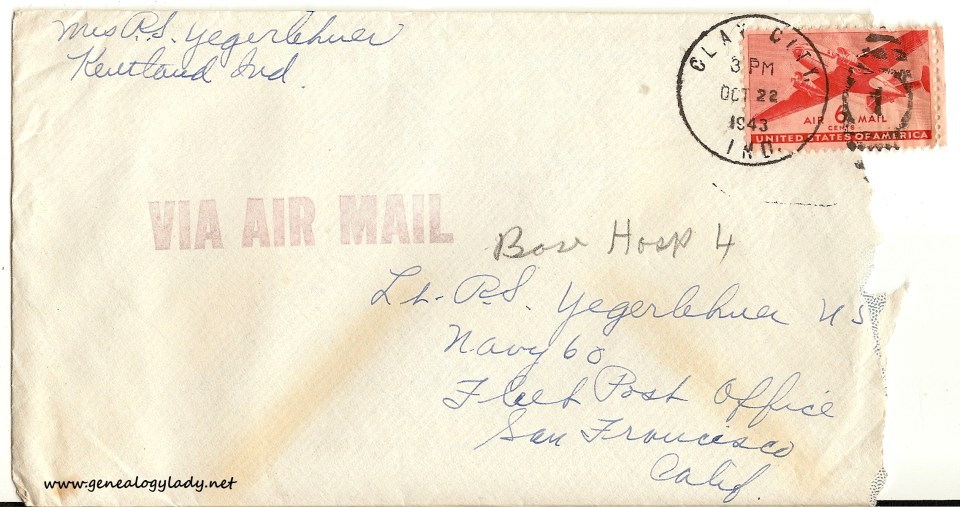 Mrs R.S. Yegerlehner
Kentland Ind
CLAY CITY
3 PM
OCT 22
1943
IND.
AIR 6 MAIL
CENTS
UNITED STATES OF AMERICA
VIA AIR MAIL
Base Hosp 4
Lt. R.S. Yegerlehner US
Navy 60
Fleet Post Office
San Francisco
Calif
www.genealogylady.net